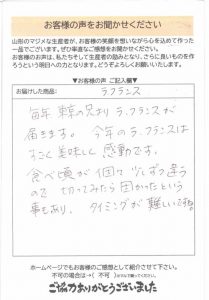 お客様の声をお聞かせください
山形のマジメな生産者が、お客様の笑顔を想いながら心を込めて作った
一品でございます。ぜひ率直なご感想をお聞かせください。
お客様のお声は、私たちそして生産者の励みとなり、さらに良いものを作
ろうという明日への力となります。どうぞよろしくお願いいたします。
▼お客様の声 ご記入欄▼
お届けした商品: ラ・フランス
毎年 東京の兄より ラ・フランスが
届きます。 今年のラ・フランスは
すごく美味しく 感動です。
食べ頃が 個々 少しずつ違う
ので 切ってみたら 固かったという
事もあり、 タイミングが 難しいですね。
ホームページでもお客様のご感想として紹介させて下さい。
不可の場合は→( 不可 )
ご協力ありがとうございました